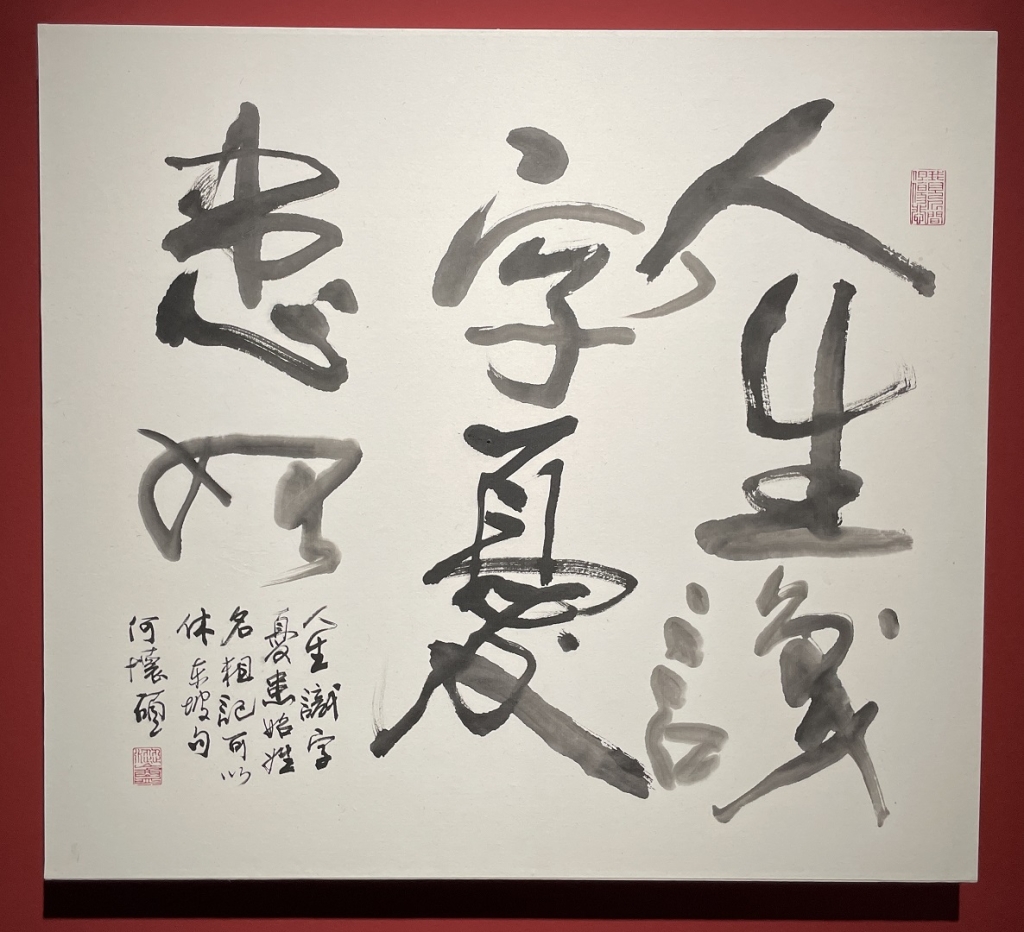 人生識
字憂
患始
人生識字
憂患始姓
名粗記可以
休东坡句
何懷碩